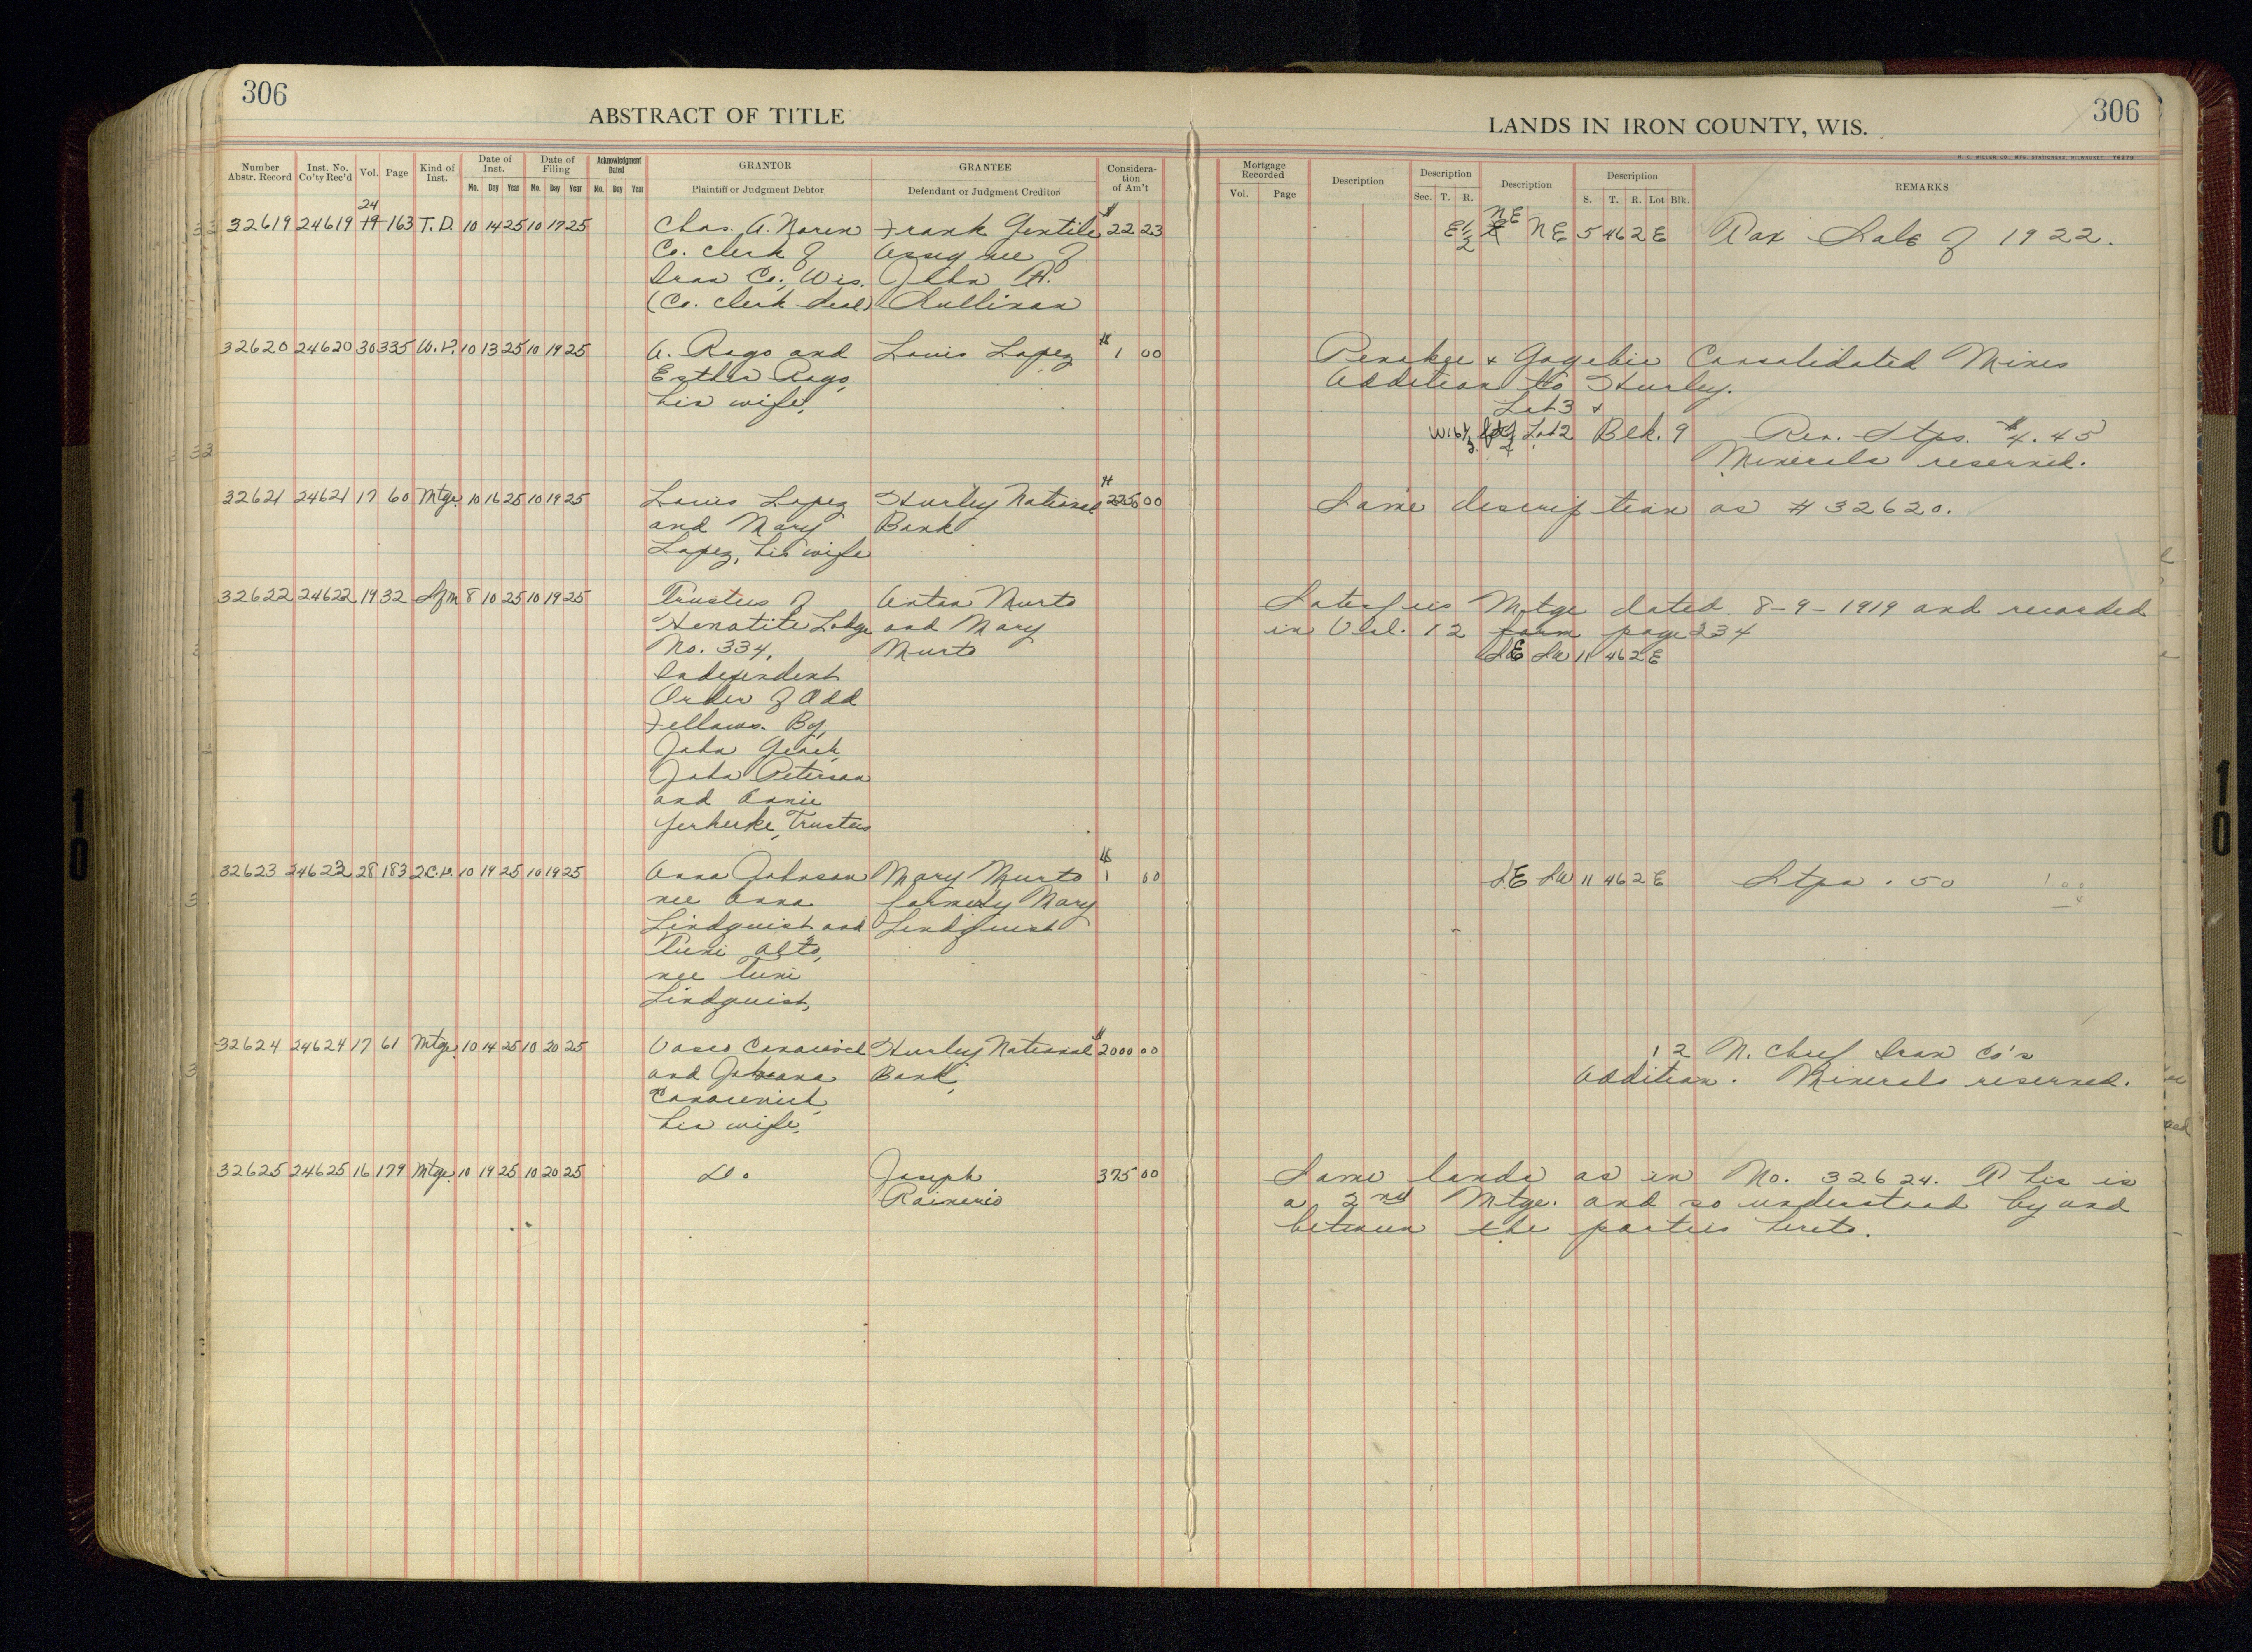 306
306
ABSTRACT OF TITLE
LANDS IN IRON COUNTY, WIS.
H. C. MILLER CO., MFG. STATIONERS, MILWAUKEE Y6279
Number Abstr. Record
Inst. No. Co'ty Rec'd
Vol.
Page
Kind of Inst.
Date of Inst.
Mo. Day Year
Date of Filing
Mo. Day Year
Acknowledgment Dated
Mo. Day Year
GRANTOR
Plaintiff or Judgment Debtor
GRANTEE
Defendant or Judgment Creditor
Considera-tion of Am't
Mortgage Recorded
Vol. Page
Description
Description
Sec. T. R.
Description
Description
S. T. R. Lot Blk.
REMARKS
24
32619 24619 19 163 T.D. 10 14 25 10 17 25 Chas. A. Noren Frank Gentile $22 23 E½ NE NE 5 46 2E Tax Sale of 1922.
Co. Clerk of Assignee of
Iron Co., Wis. John A.
(Co. Clerk Seal) Sullivan
32620 24620 30 335 W.D. 10 13 25 10 19 25 A. Rago and Louis Lopez $1 00 Penokee & Gogebic Consolidated Mines
Esther Rago, Addition to Hurley.
his wife, Lot 3 &
W 16⅔ ft of Lot 2 Blk. 9 Rev. Stps. $4.45
Minerals reserved.
32621 24621 17 60 Mtge. 10 16 25 10 19 25 Louis Lopez Hurley National $2250 00 Same description as #32620.
and Mary Bank
Lopez, his wife
32622 24622 19 32 Sfm 8 10 25 10 19 25 Trustees of Anton Murto Satisfies Mtge dated 8-9-1919 and recorded
Hematite Lodge and Mary in Vol. 12 page 334
No. 334, Murto SE SW 11 46 2E
Independent
Order of Odd
Fellows. By,
John
John Peterson
and Annie
Trustees
32623 24623 28 183 2C.D. 10 19 25 10 19 25 Anna Johnson Mary Murto $1 00 SE SW 11 46 2E Stps .50
nee Anna formerly Mary
Lindquist and Lindquist
Tuni Alto,
nee Tuni
Lindquist,
32624 24624 17 61 Mtge. 10 14 25 10 20 25 Hurley National $2000 00 12 N. Chief Iron Co's
and Bank, Addition. Minerals reserved.
his wife,
32625 24625 16 179 Mtge. 10 19 25 10 20 25 Do Joseph 375 00 Same lands as in No. 32624. This is
Rainerio a 2nd Mtge. and so understood by and
between the parties hereto.